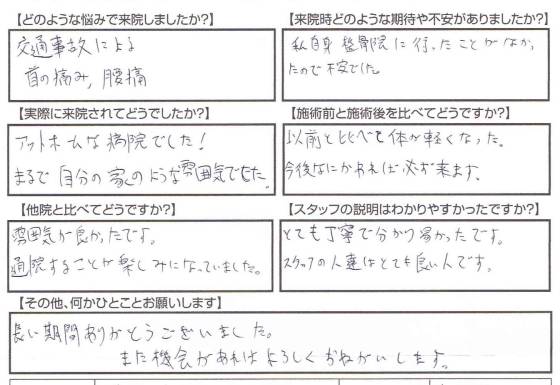 【どのような悩みで来院しましたか?】
交通事故による
首の痛み,腰痛
【来院時どのような期待や不安がありましたか?】
私自身 整骨院に行ったことがなか
たので不安でした。
【実際に来院されてどうでしたか?】
アットホームな病院でした!
まるで自分の家のような雰囲気でした。
【施術前と施術後を比べてどうですか?】
以前と比べて体が軽くなった。
今後なにかあれば必ず来ます。
【他院と比べてどうですか?】
雰囲気が良かったです。
通院することが楽しみになっていました。
【スタッフの説明はわかりやすかったですか?】
とても丁寧で分かり易かったです。
スタッフの人達はとても良い人です。
【その他、何かひとことお願いします】
長い期間ありがとうございました。
また機会があればよろしくおねがいします。